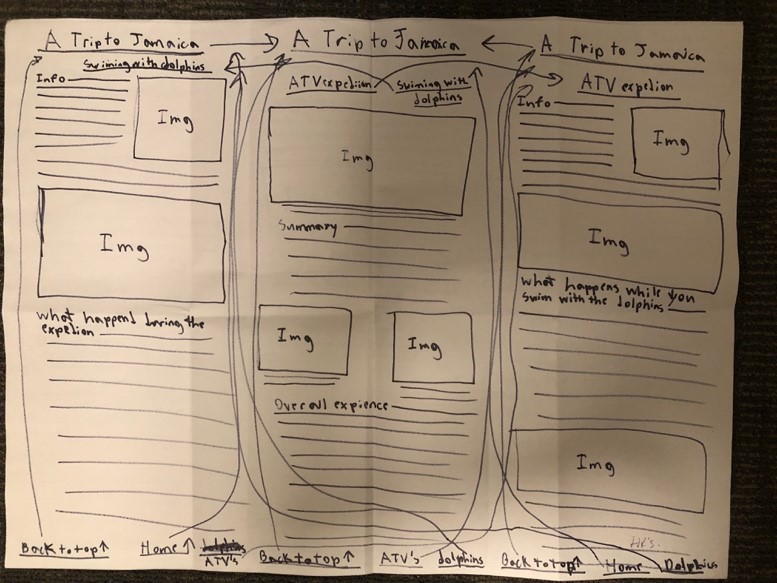 A Trip to Jamaica
Swiming with dolphins
Info
Img
Img
what happend during the
expedion
Back to top ↑
Home ↑
ATV's
A Trip to Jamaica
ATV expediion
Swiming with
dolphins
Img
Summary
Img
Img
Overall expience
Back to top ↑
ATV's
dolphins
A Trip to Jamaica
ATV expedion
Info
Img
Img
what happens while you
swim with the dolphins
Img
Back to top ↑
Home
Dolphins